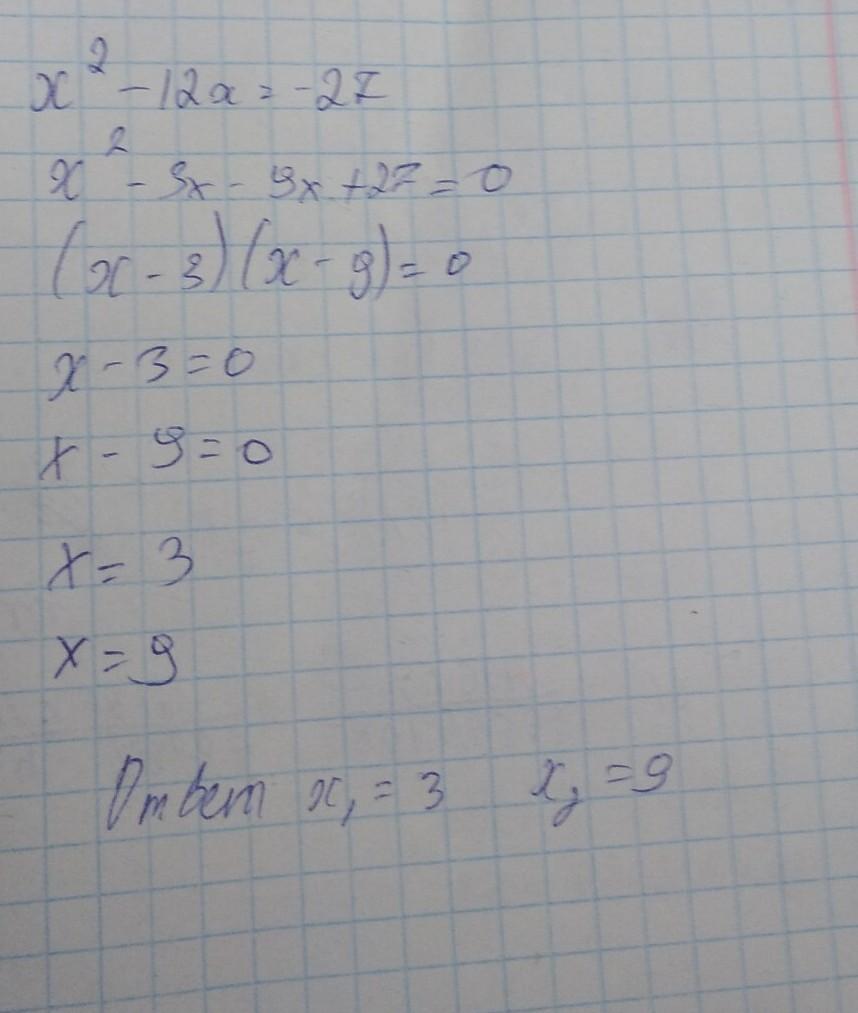 x² - 12x = -27
x² - 3x - 9x + 27 = 0
(x - 3)(x - 9) = 0
x - 3 = 0
x - 9 = 0
x = 3
x = 9
Ответ x₁ = 3 x₂ = 9